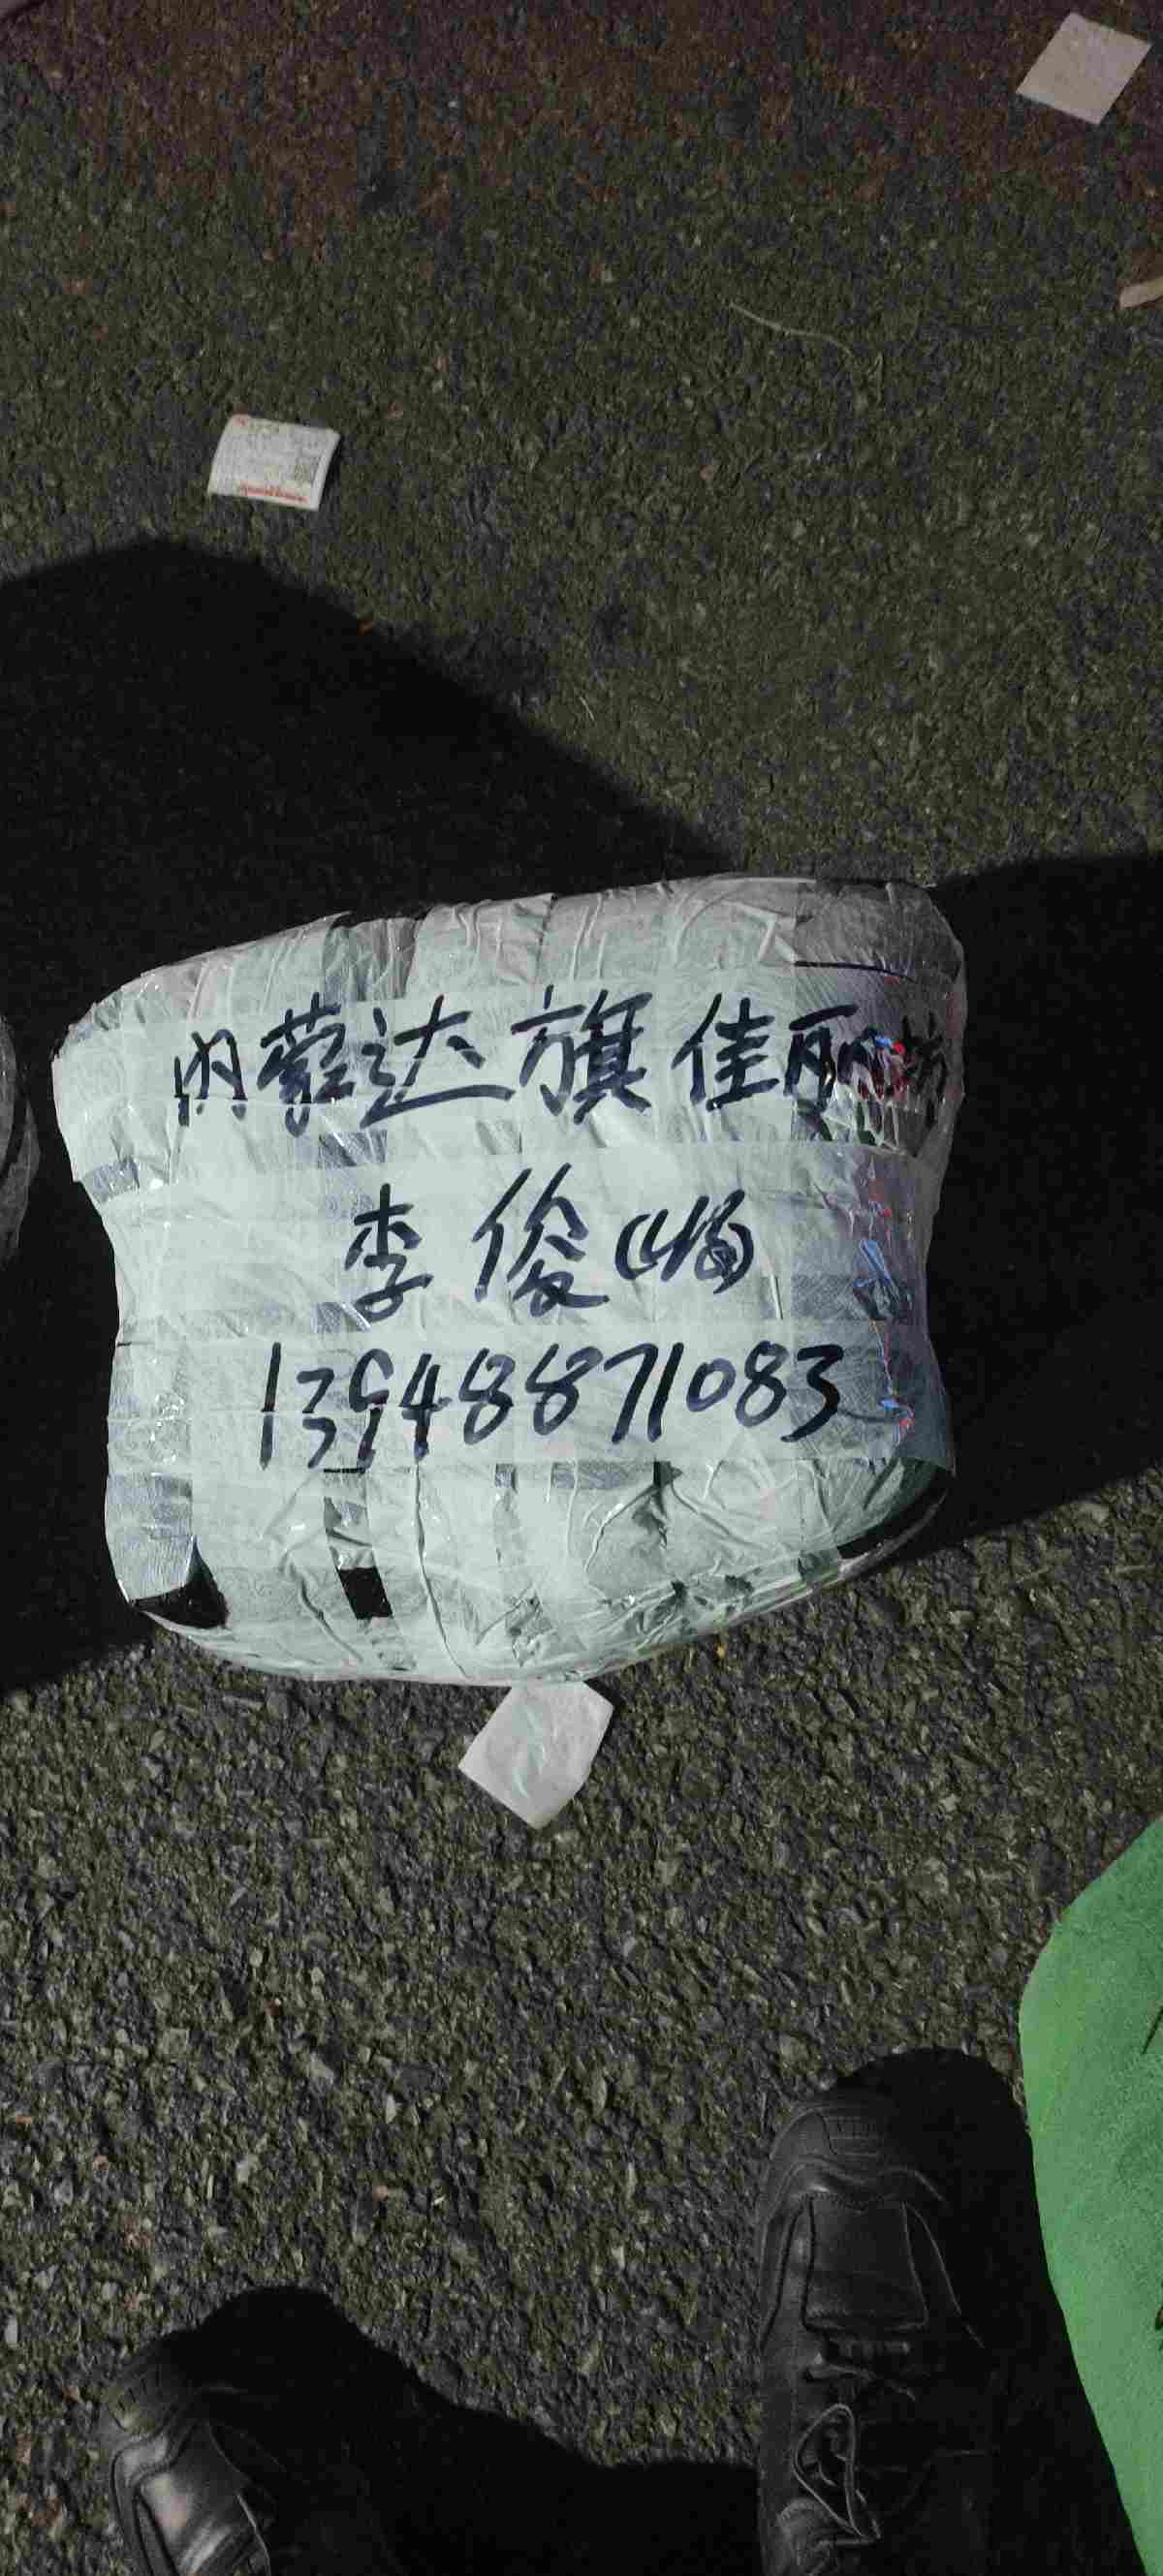 内蒙达旗佳丽
李俊
13948871083